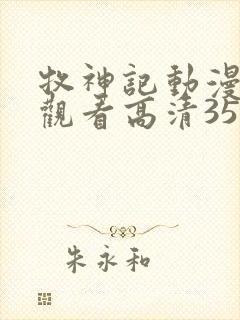 牧神記動漫
觀看高清35
朱永和